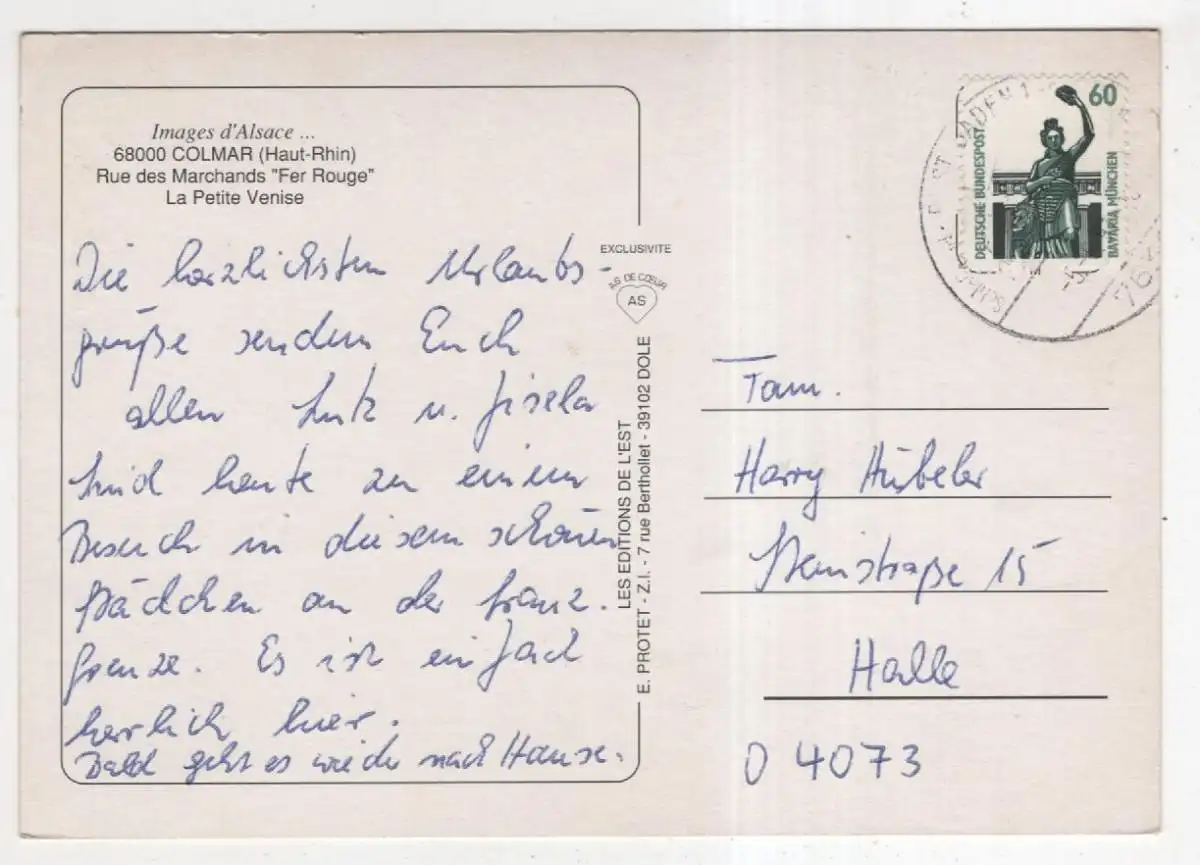 Images d'Alsace ...
68000 COLMAR (Haut-Rhin)
Rue des Marchands "Fer Rouge"
La Petite Venise
Die herzlichsten Urlaubs-
grüße senden Euch
allen Lutz u. Gisela
Sind heute zu einem
Besuch in diesem schönen
Städchen an der franz.
Grenze. Es ist einfach
herrlich hier.
Bald geht es wieder nach Hause.
EXCLUSIVITE
AS DE CŒUR
AS
LES EDITIONS DE L'EST
E. PROTET - Z.I. - 7 rue Berthollet - 39102 DOLE
60
DEUTSCHE BUNDESPOST
BAVARIA MÜNCHEN
Fam.
Harry Hübeler
Steinstraße 15
Halle
O 4073